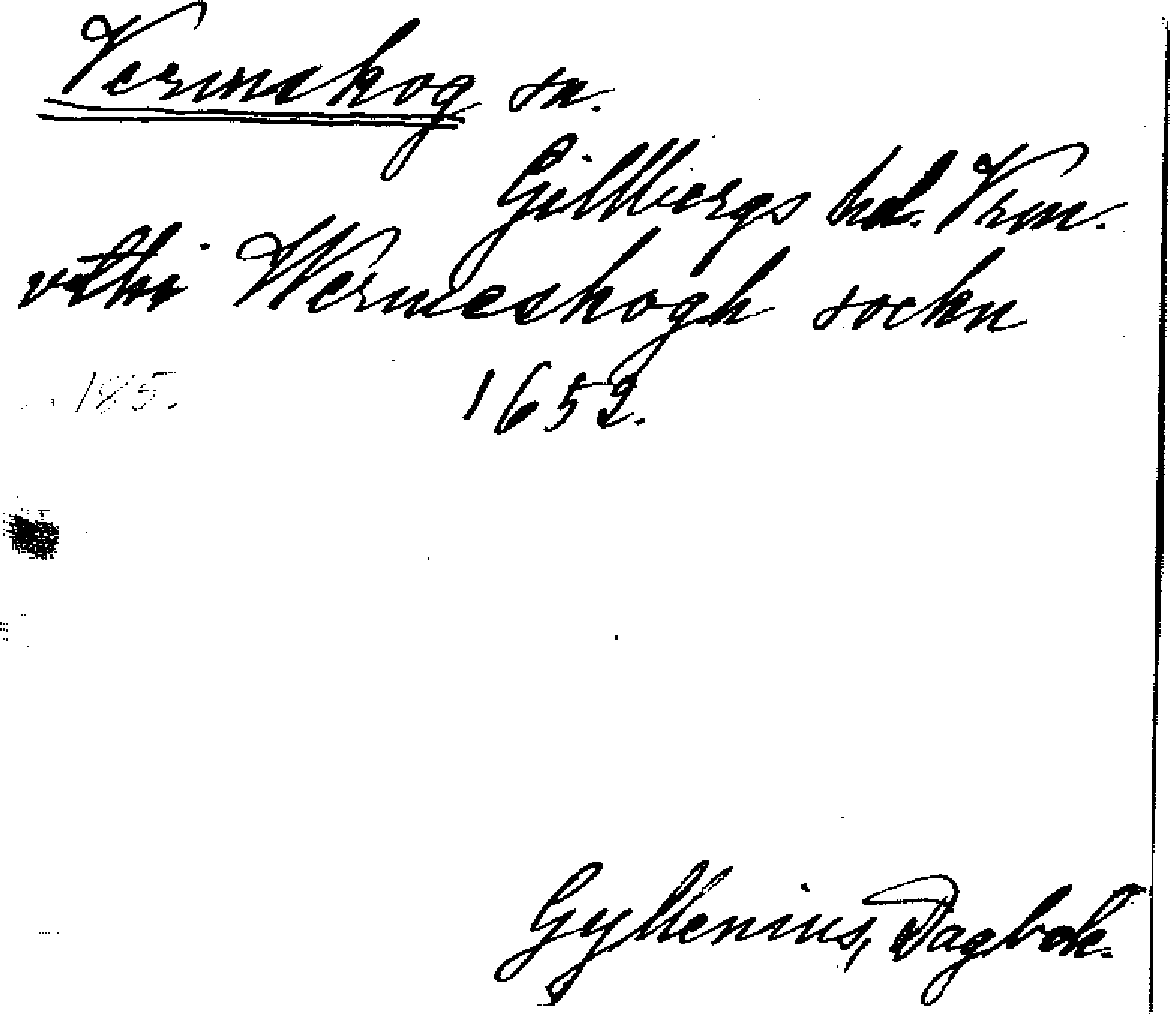 Vermskog sn.
Gillbergs hd. Vrm.
vthi Wermeskogh sockn
185. 1652.
Gyllenius, Dagbok.